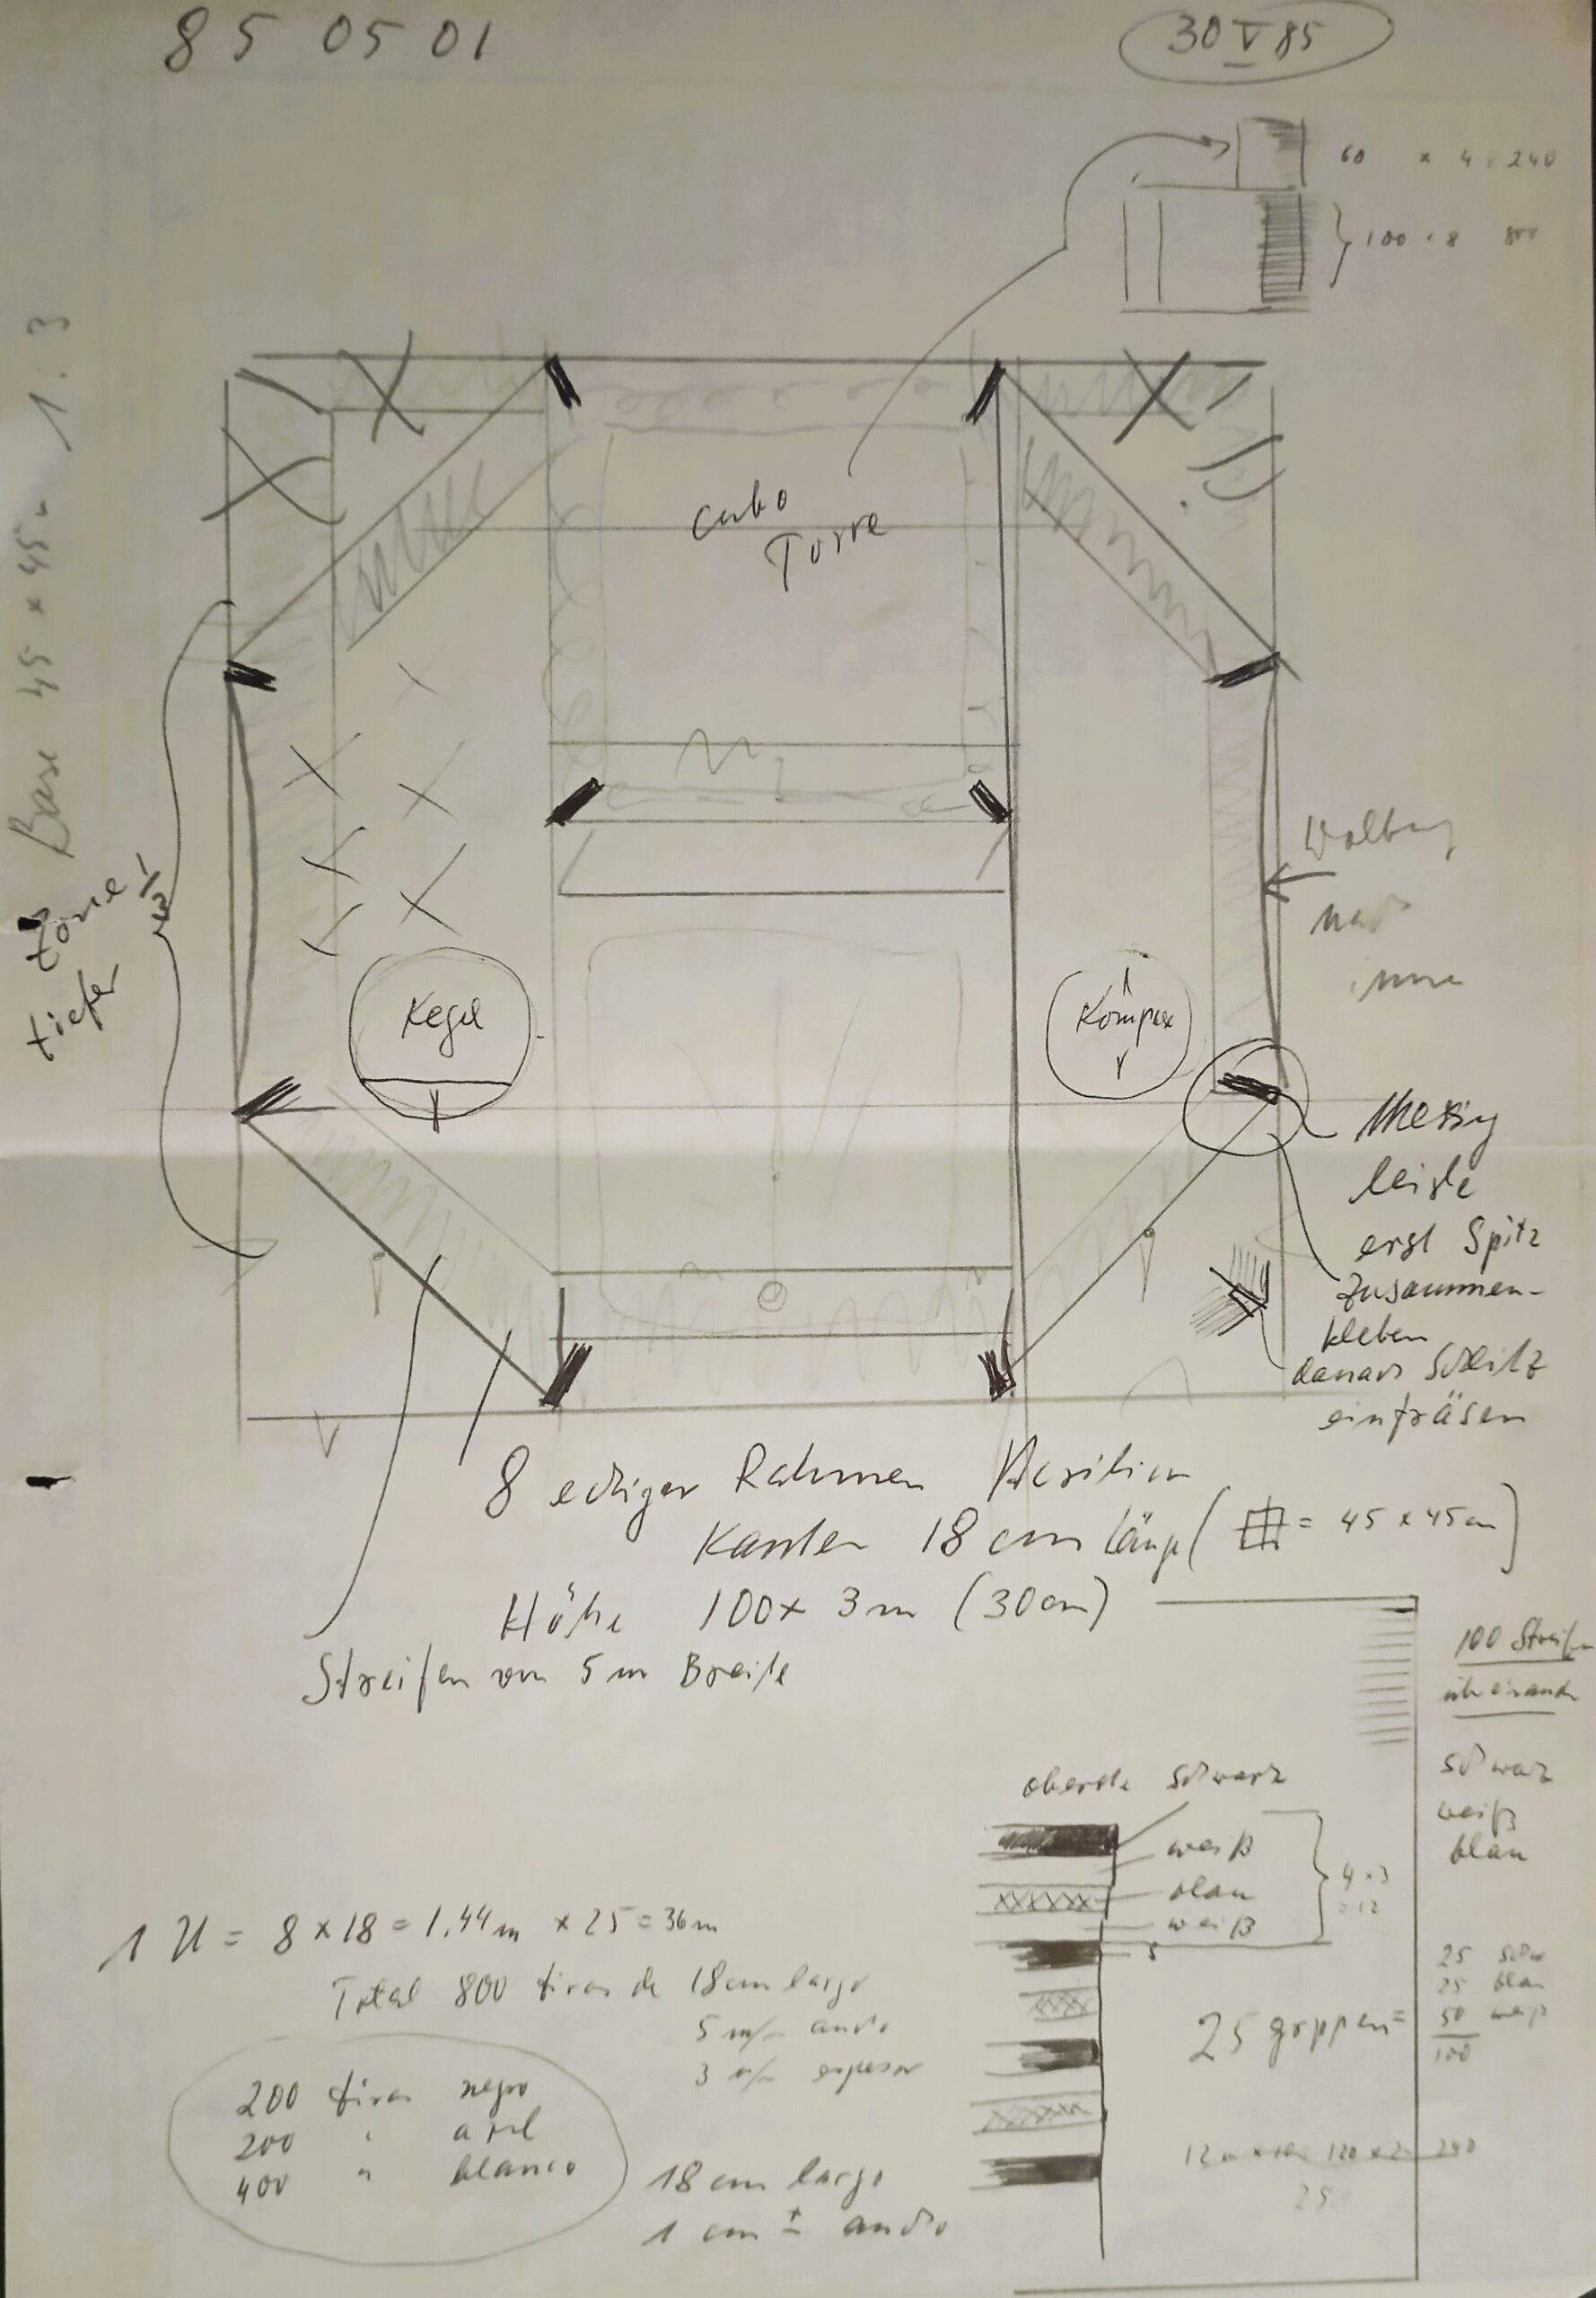 85 05 01
30 V 85
60 x 4 = 240
100 · 8 800
Base 45 x 45 1:3
cubo
Torre
Wölbung
nach
inne
Zone 1/3
tiefer
Kegel
Messing
leiste
erst Spitz
zusammen-
kleben
danach Schlitz
einfräsen
8 eckiger Rahmen
Kanten 18 cm läng ( = 45 x 45 cm )
Höhe 100 x 3 m (30 cm)
Streifen von 5 m Breite
100 Streifen
übereinander
schwarz
weiß
blau
oberste schwarz
weiß
blau
weiß
4 x 3
= 12
S
1 U = 8 x 18 = 1.44 m x 25 = 36 m
Total 800 tiras de 18 cm largo
5 m/m ancho
3 m/m espesor
25 gruppen =
25 schw
25 blau
50 weiß
100
200 tiras negro
200 " azul
400 " blanco
18 cm largo
1 cm ± ancho
120 x 2 = 240
25